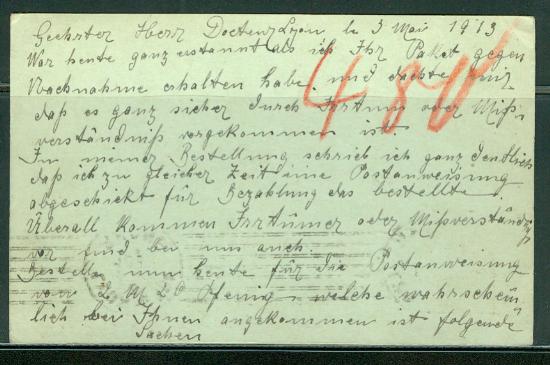 Geehrter Herr Doctor Lyon, le 3 Mai 1913
War heute ganz erstaunt als ich Ihr Paket gegen
Nachnahme erhalten habe und dachte mir
daß es ganz sicher durch Irrtum oder Miß-
verständniß vorgekommen ist
In meiner Bestellung schrieb ich ganz deutlich
daß ich zu gleicher Zeit eine Postanweisung
abgeschickt für Bezahlung das bestellte.
Überall kommen Irrtümer oder Mißverständniß
vor und bei uns auch.
Bestelle nun heute für die Postanweisung
von 2 M 20 Pfenig, welche wahrschein
lich bei Ihnen angekommen ist folgende
Sachen
480